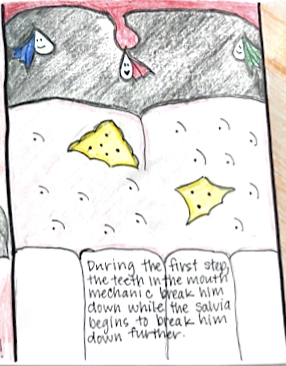 During the first step,
the teeth in the mouth
mechanic break him
down while the salvia
begins to break him
down further.